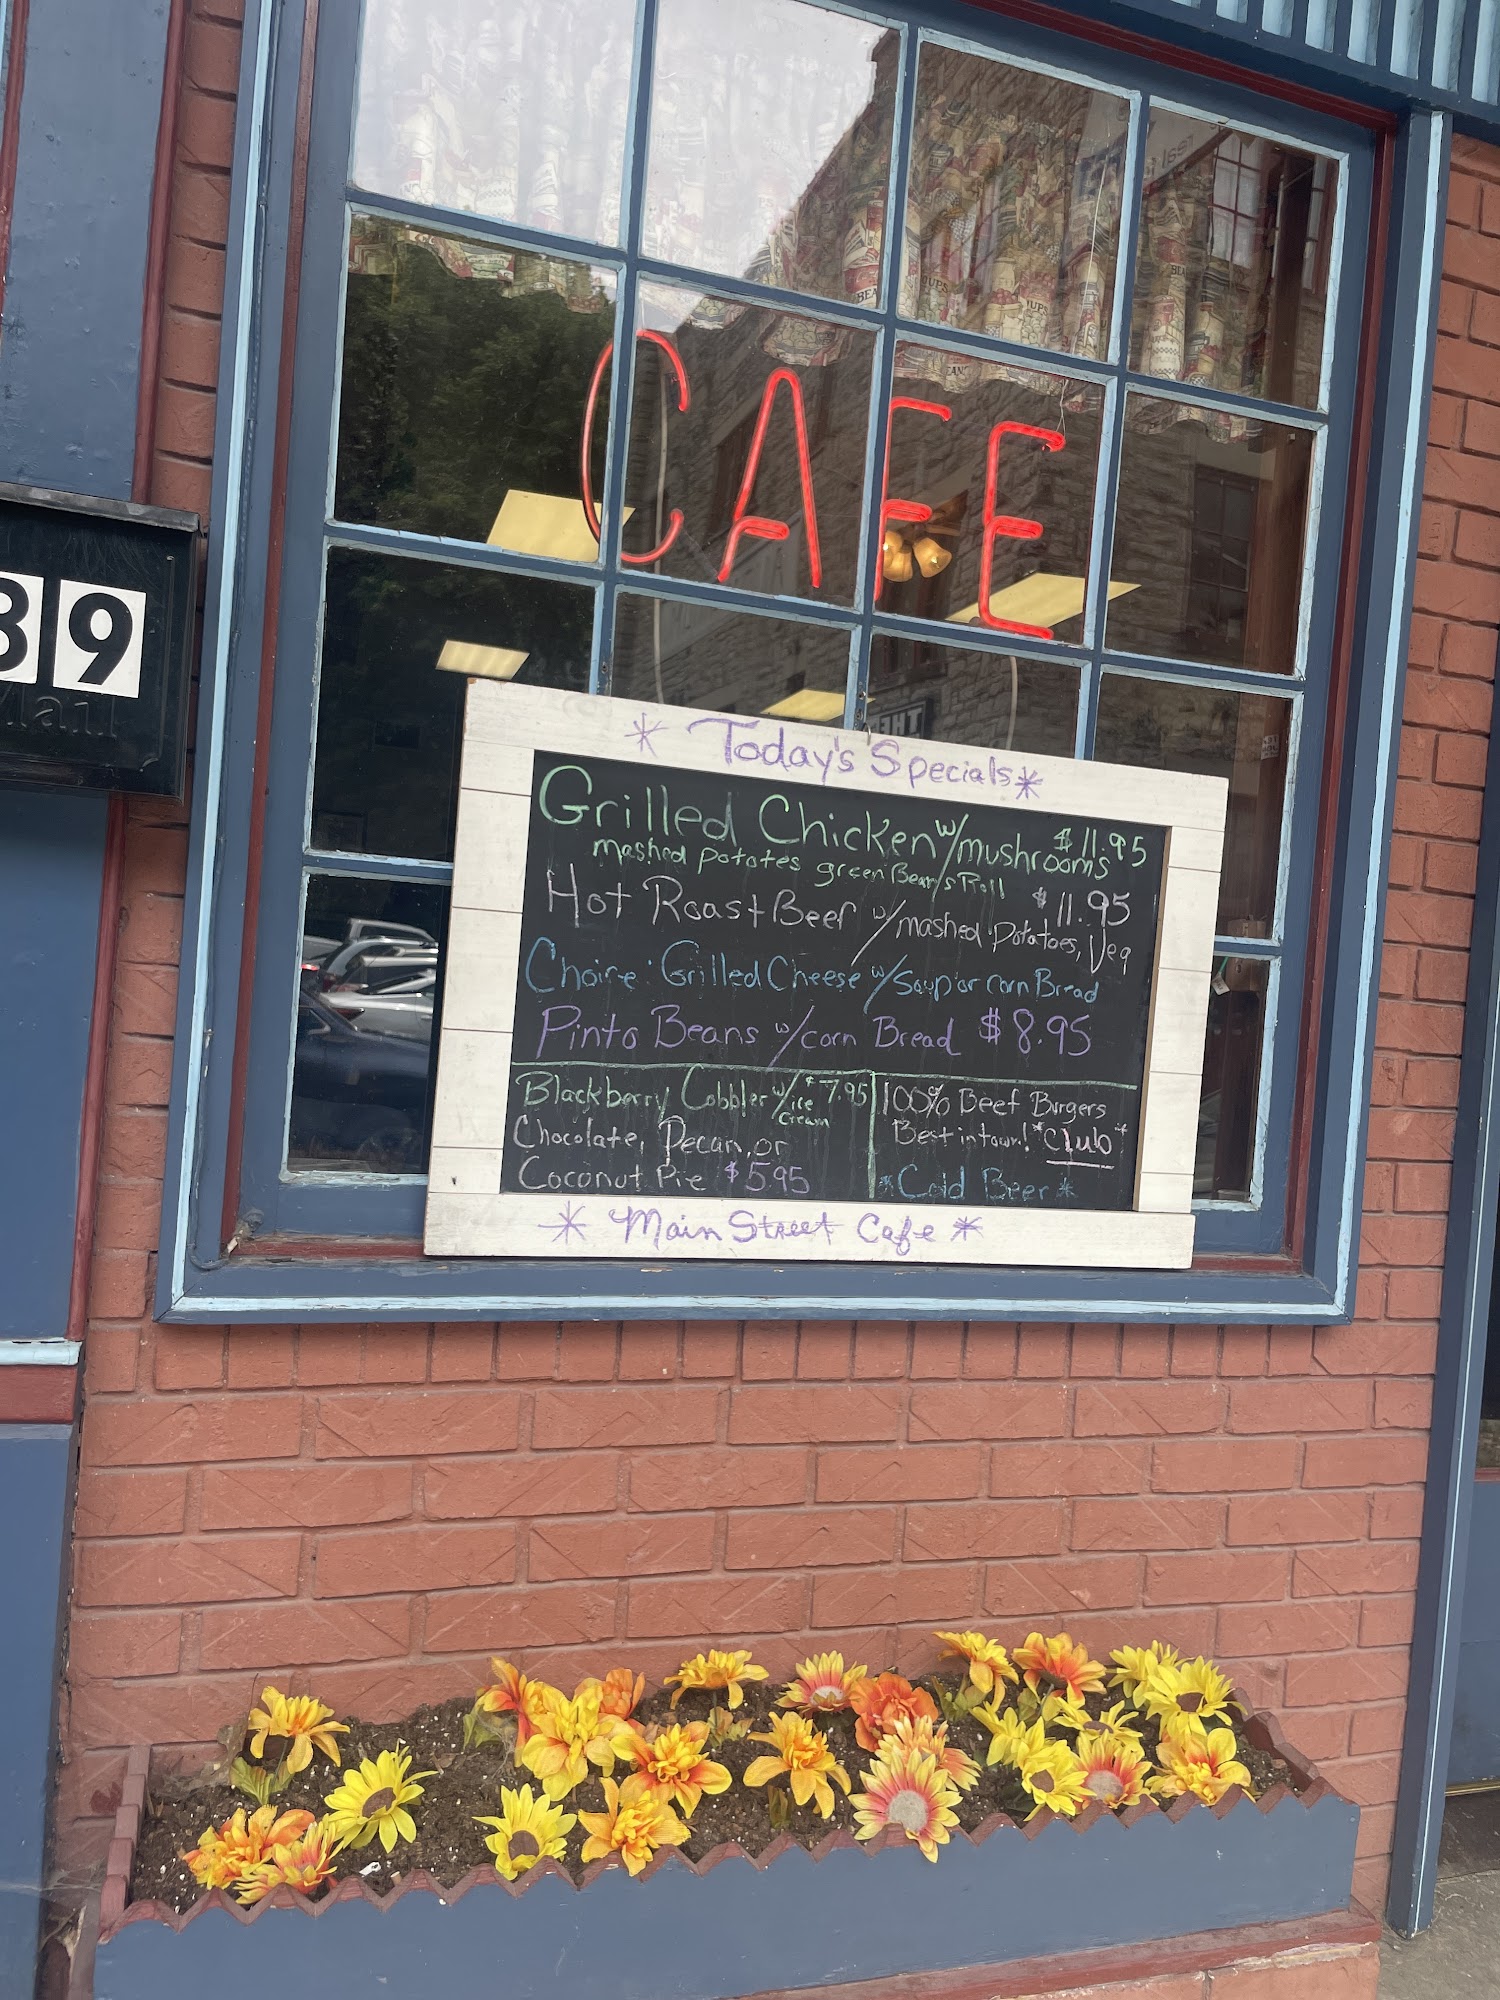 CAFE
39
Mail
* Today's Specials *
Grilled Chicken w/mushrooms $11.95
mashed potatoes green Beans Roll
Hot Roast Beef w/mashed Potatoes, Veg $11.95
Choice: Grilled Cheese w/soup or corn Bread
Pinto Beans w/corn Bread $8.95
Blackberry Cobbler w/ice cream $7.95
Chocolate, Pecan, or
Coconut Pie $5.95
100% Beef Burgers
Best in town! "Club"
*Cold Beer*
* Main Street Cafe *